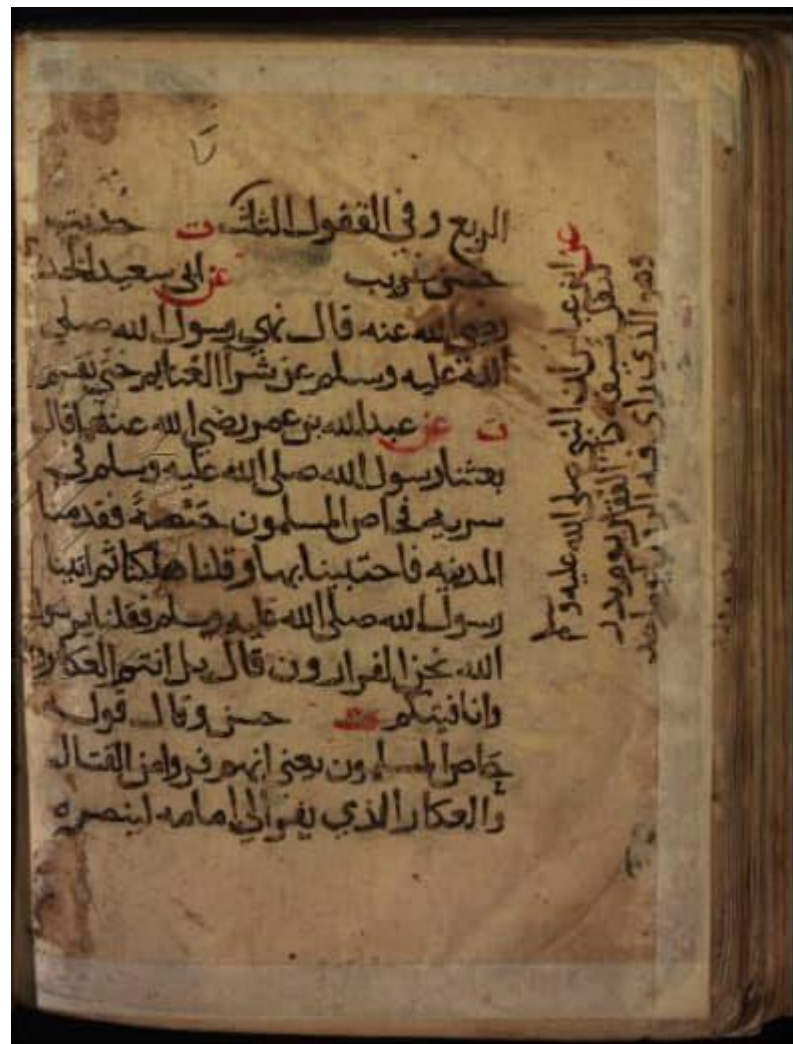 الربع وفي القفول الثلث ت حديث
حسن غريب عن ابي سعيد الخد
رضي الله عنه قال نهي رسول الله صلي
الله عليه وسلم عن شرا الغنايم حتي تقسم
ت عن عبد الله بن عمر رضي الله عنهما قال
بعثنا رسول الله صلي الله عليه وسلم في
سريه فحاص المسلمون حَيْصَةً فقدمنا
المدينه فاحتبينا بها وقلنا هلكنا ثم اتينا
رسول الله صلي الله عليه وسلم فقلنا يرسول
الله نحن الفرارون قال بل انتم العكارون
وانا فيتكم ت حسن وقال قوله
حاص المسلمون يعني انهم فروا من القتال
والعكار الذي يفر الي امامه لينصره
عن ابن عباس ان النبي صلي الله عليه وسلم
تنفل سيفه ذا الفقار يوم بدر
وهو الذي راي فيه الرويا يوم احد